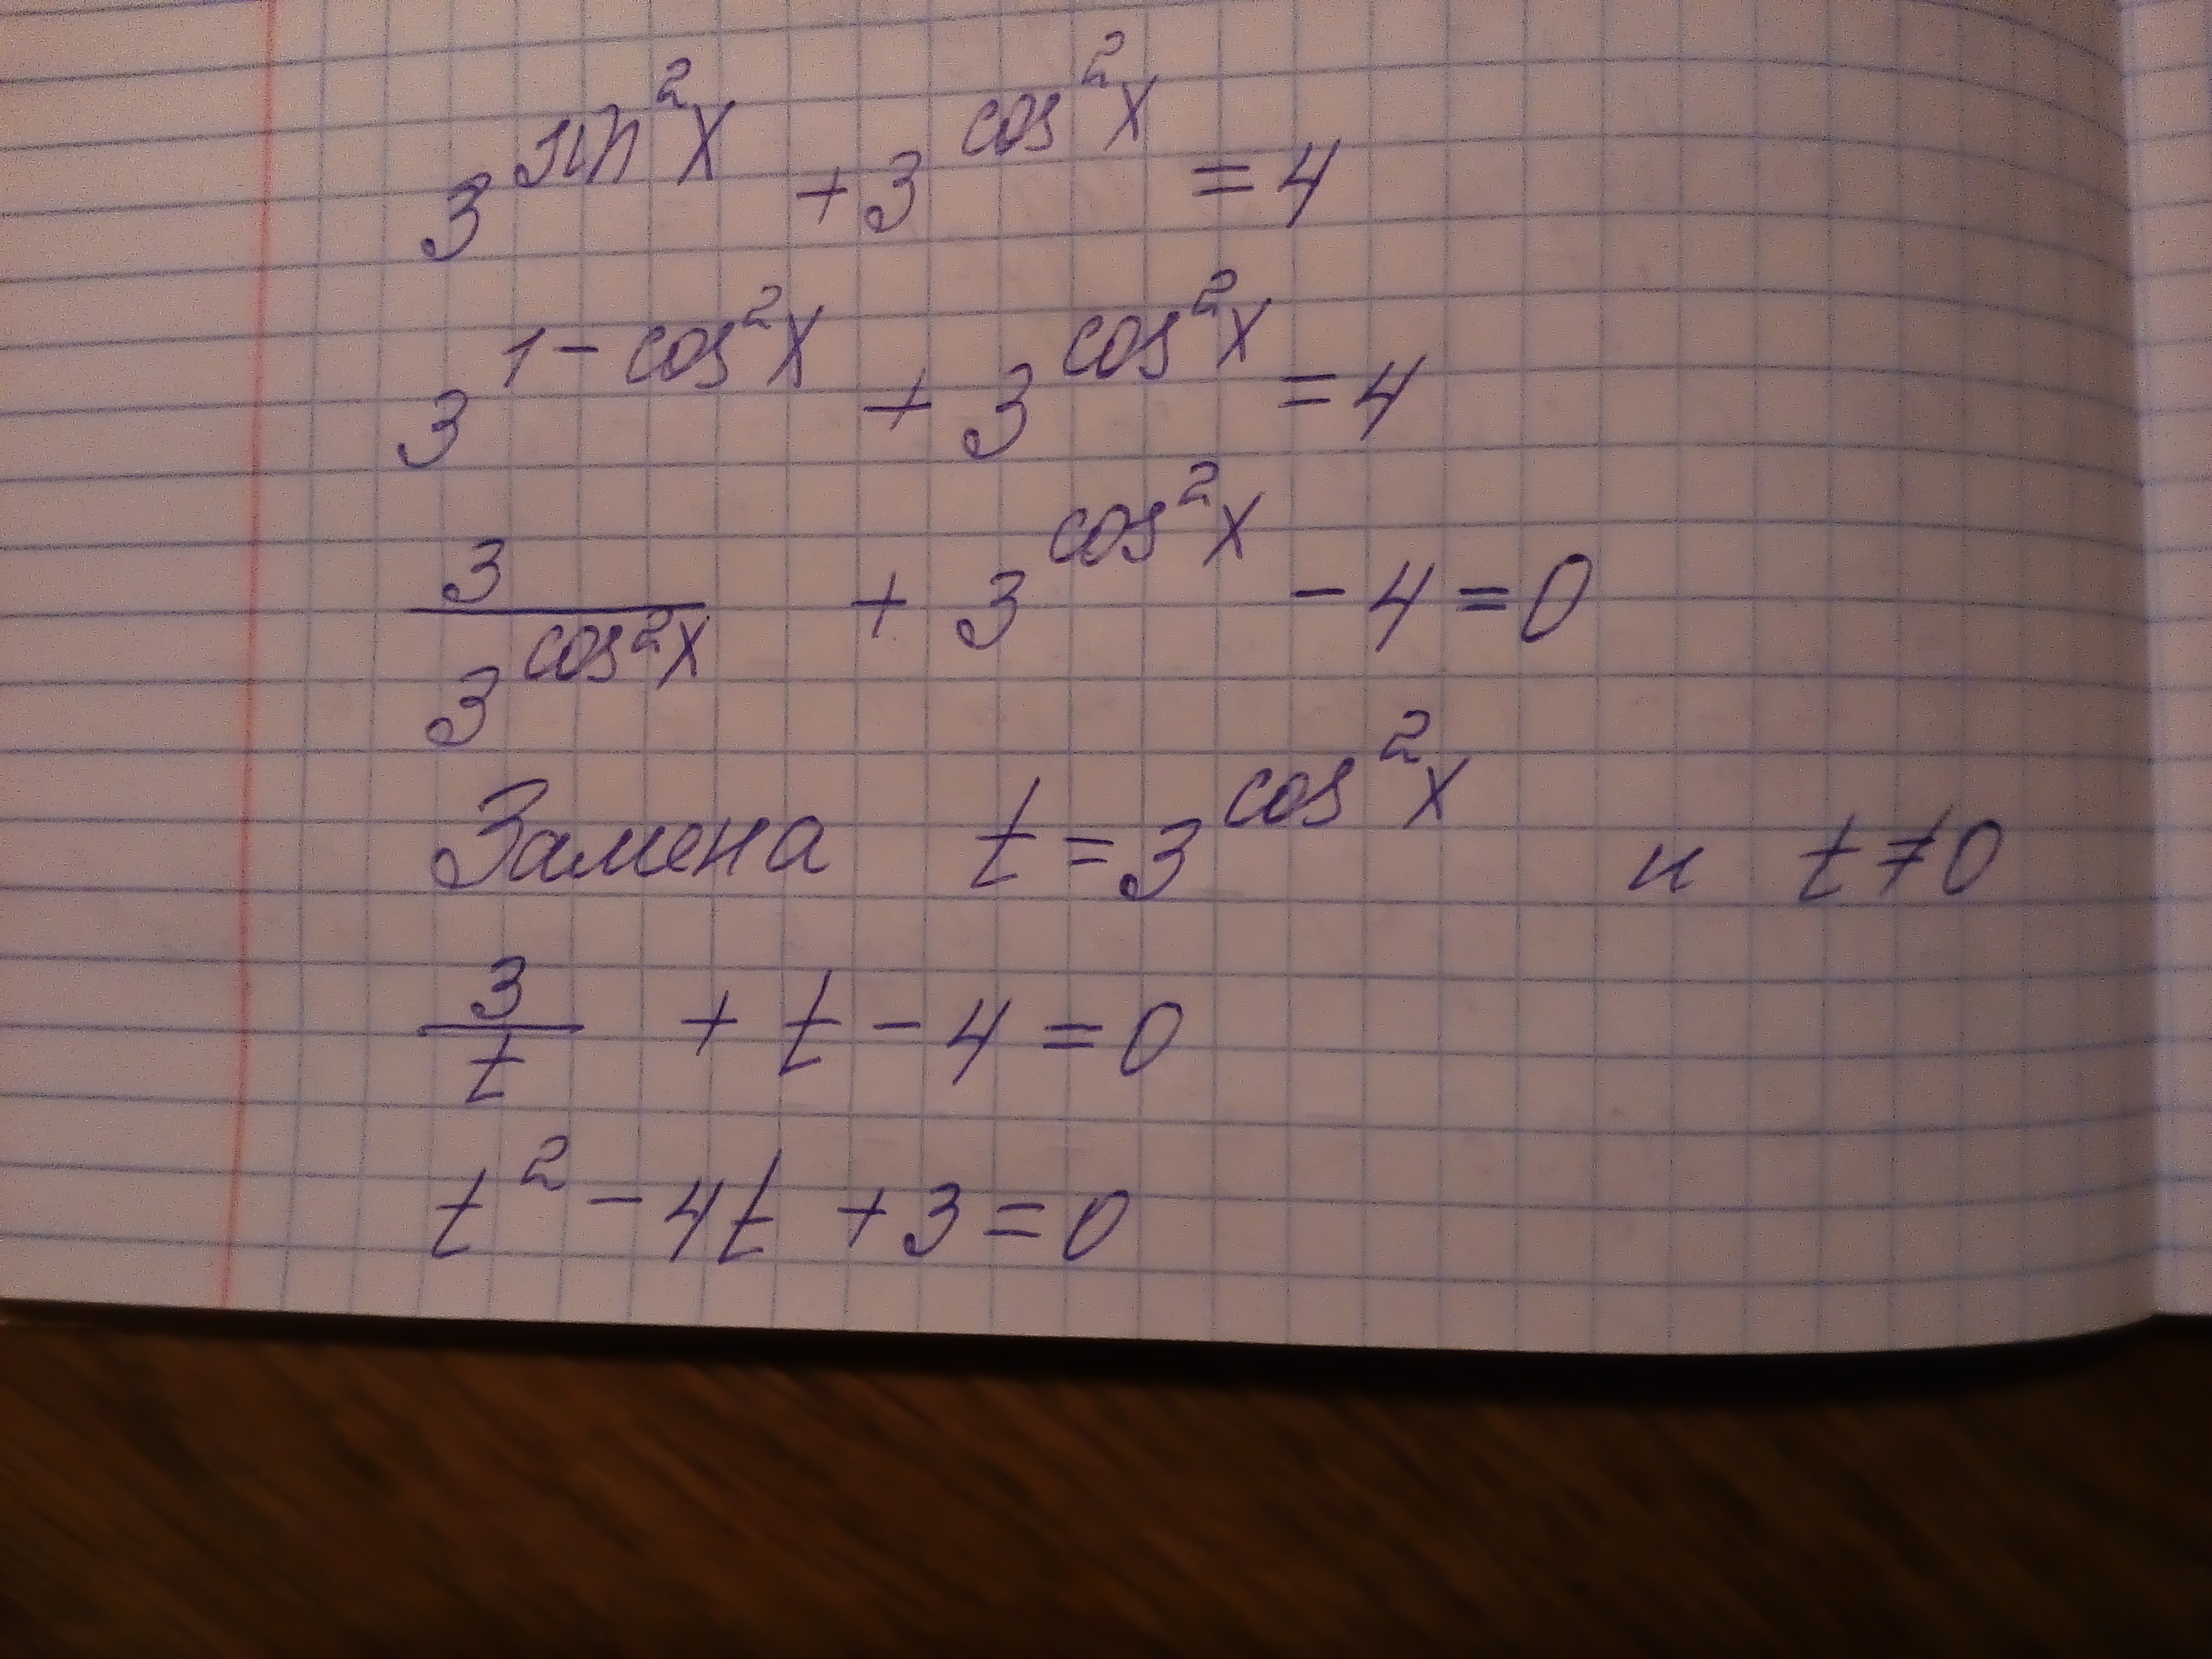 3^{sin^2 x} + 3^{cos^2 x} = 4
3^{1 - cos^2 x} + 3^{cos^2 x} = 4
\frac{3}{3^{cos^2 x}} + 3^{cos^2 x} - 4 = 0
Замена t = 3^{cos^2 x} и t ≠ 0
\frac{3}{t} + t - 4 = 0
t^2 - 4t + 3 = 0